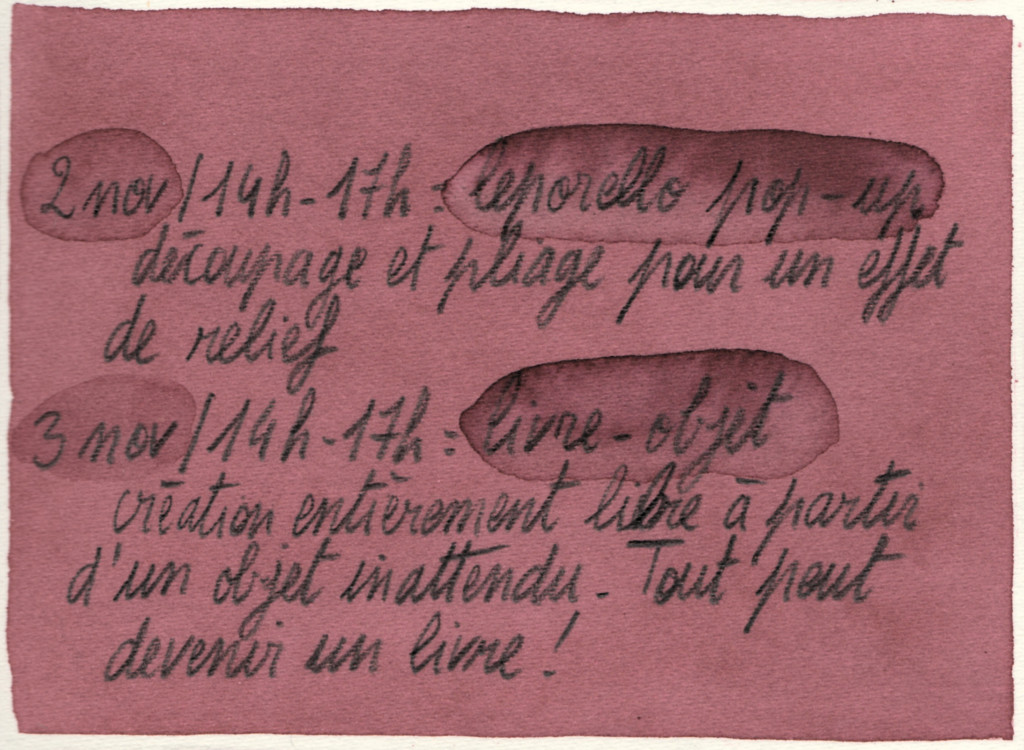 2 nov / 14h - 17h : leporello pop-up
découpage et pliage pour un effet
de relief
3 nov / 14h - 17h : livre-objet
création entièrement libre à partir
d'un objet inattendu. Tout peut
devenir un livre !